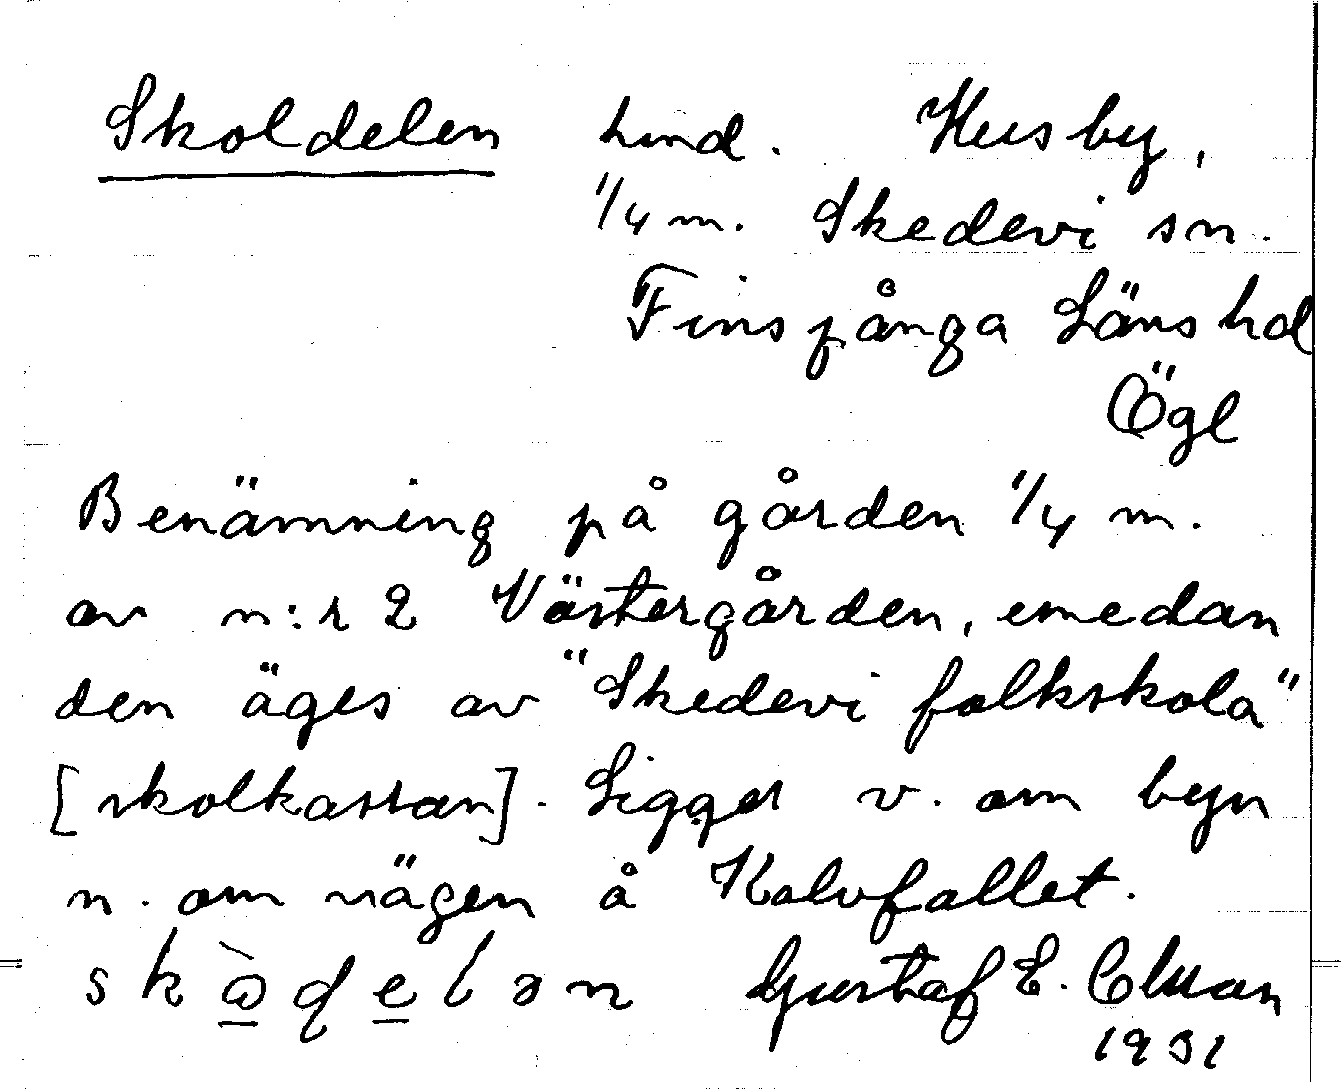 Skoldelen hmd. Husby,
1/4 m. Skedevi sn.
Finspånga Läns hd
Ögl
Benämning på gården 1/4 m.
av n:r 2 Västergården, emedan
den äges av "Skedevi folkskola"
[skolkassan]. Ligger v. om byn
n. om vägen å Kalvfallet.
Gustaf E.
1931